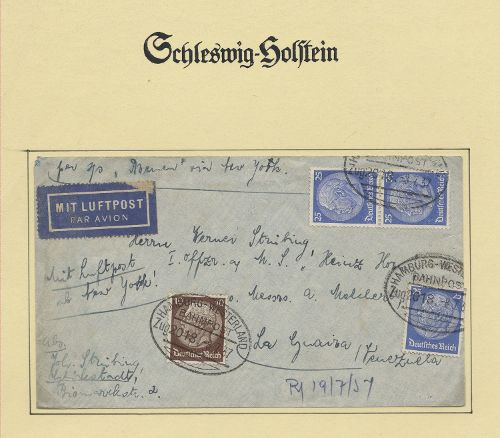 Schleswig-Holstein
per ss „Bremen" via New York.
MIT LUFTPOST
PAR AVION
25
Deutsches Reich
25
Deutsches Reich
BAHNPOST
Herrn Werner Strübing
I. Offzr. a M.S. „Heinz Hor
Mit Luftpost
ab New York!
Messrs. a
La Guaira/
Venezuela
10
Deutsches Reich
HAMBURG-WESTERLAND
BAHNPOST
Zug2018
HAMBURG-WESTE
BAHNPOST
Zug2018
25
Deutsches Reich
Abs.
Strübing
Bismarckstr. 2.
19/7/37